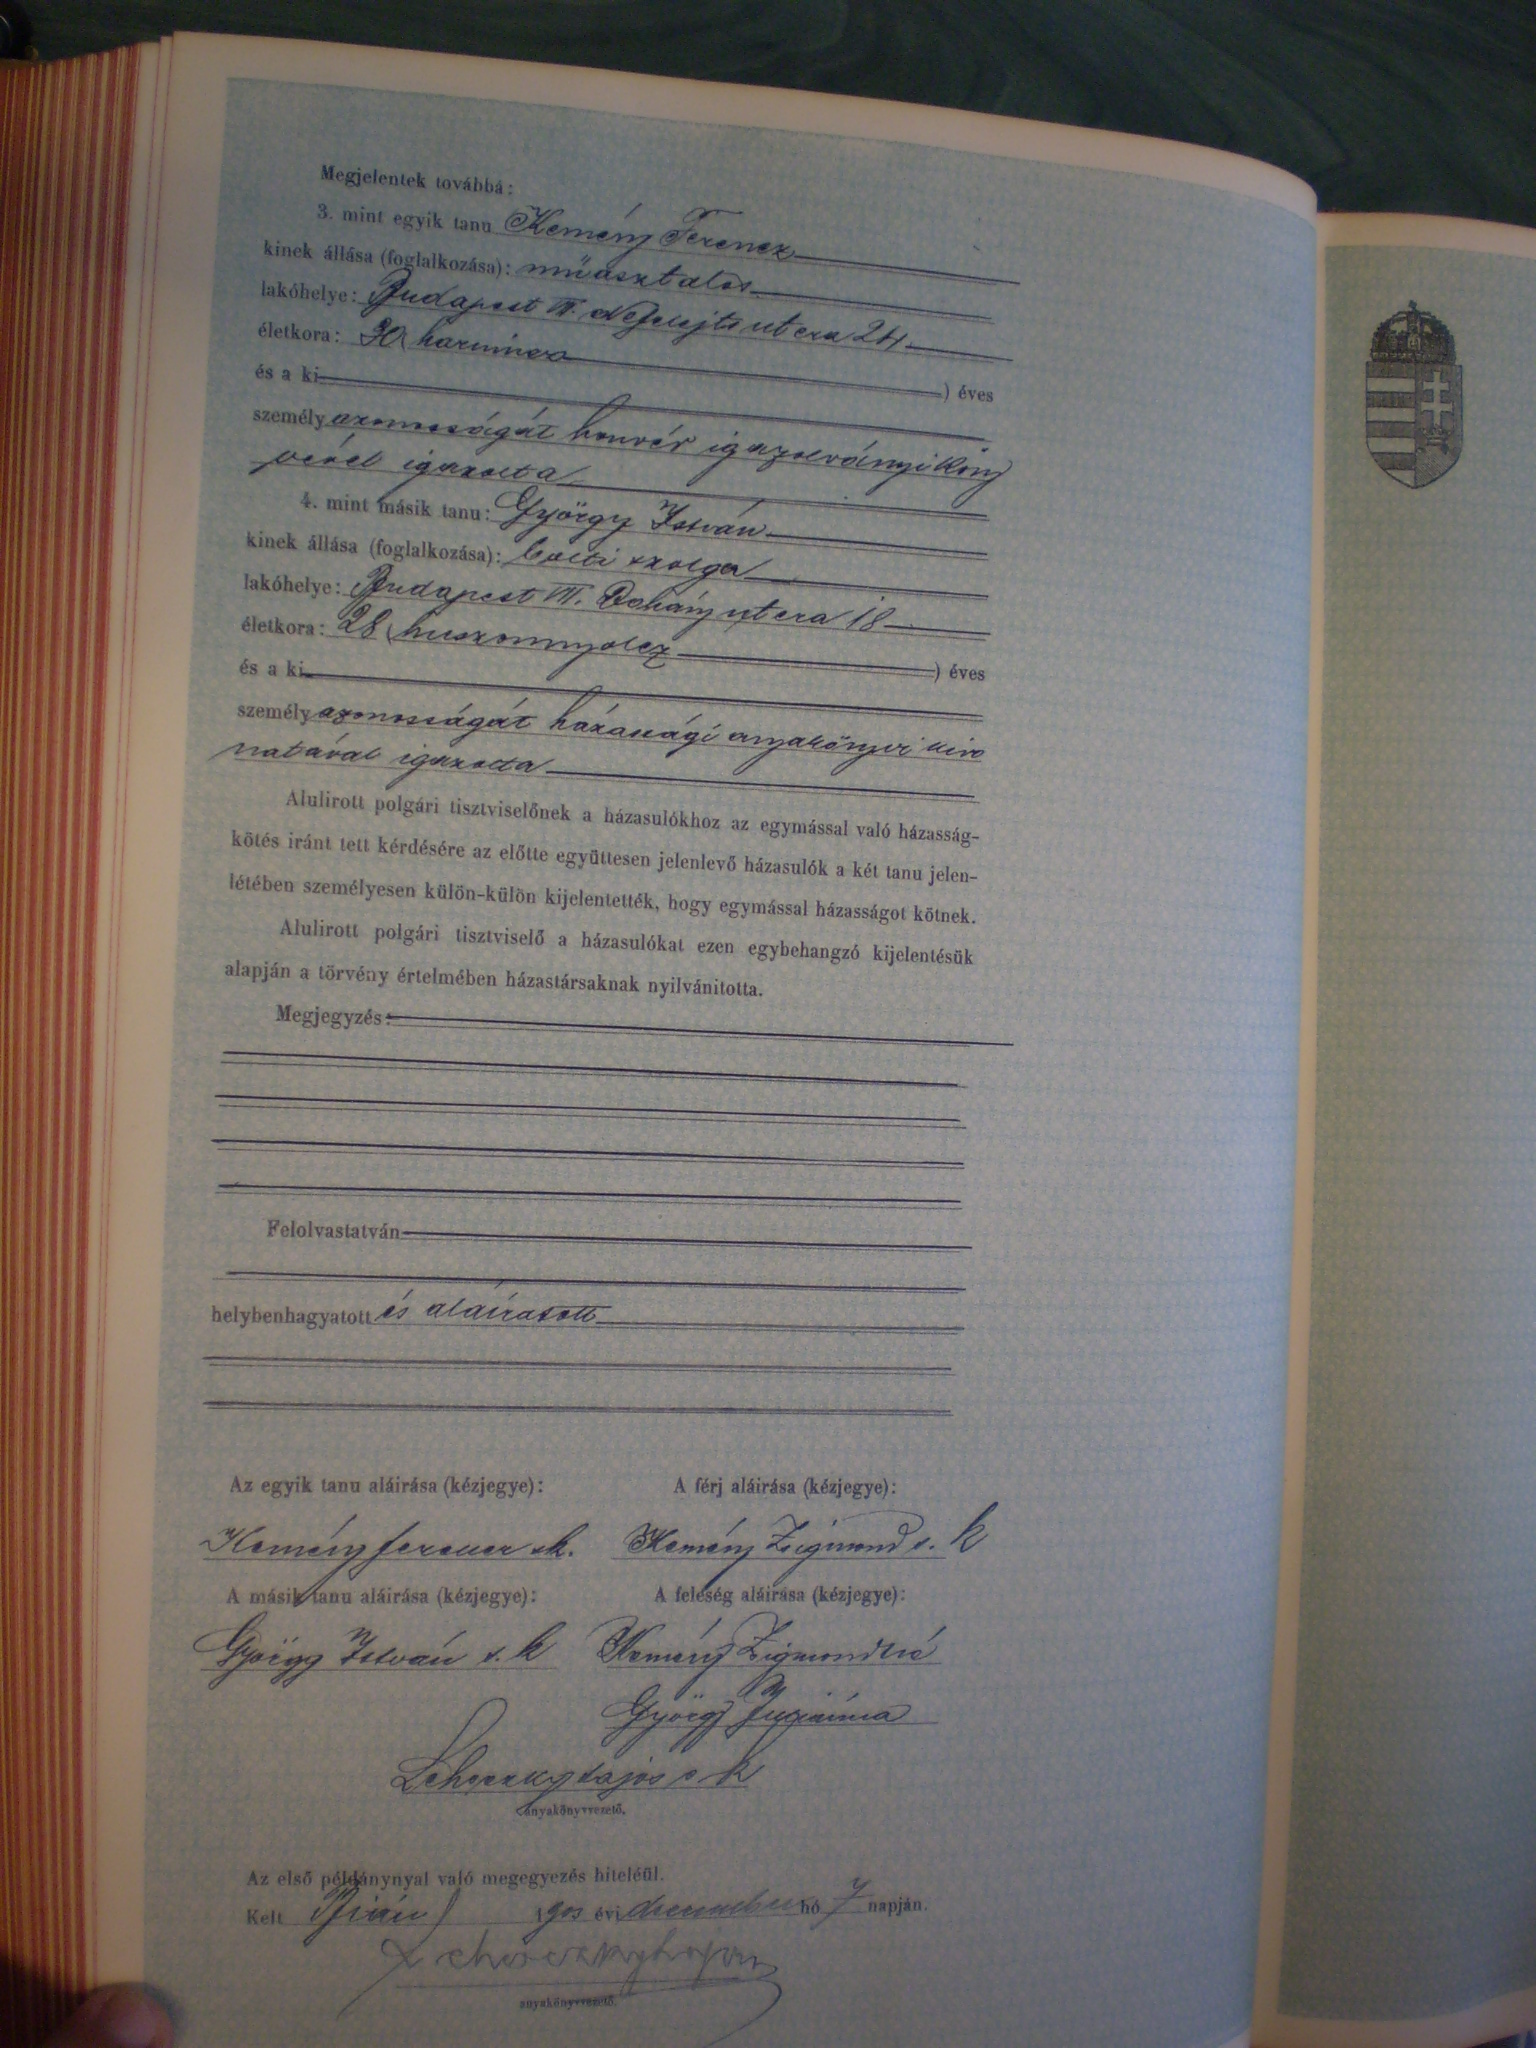 Megjelentek továbbá:
3. mint egyik tanu Kemény Ferencz
kinek állása (foglalkozása): műasztalos
lakóhelye: Budapest VII. Nefelejts utcza 24
életkora: 30 (harmincz
) éves
és a ki
személyazonosságát honvéd igazolványi köny
vével igazolta
4. mint másik tanu: György István
kinek állása (foglalkozása): bolti szolga
lakóhelye: Budapest VII. Dohány utcza 18
életkora: 28 (huszonnyolcz
) éves
és a ki
személyazonosságát házassági anyakönyvi kivo
natával igazolta
Alulirott polgári tisztviselőnek a házasulókhoz az egymással való házasság-
kötés iránt tett kérdésére az előtte együttesen jelenlevő házasulók a két tanu jelen-
létében személyesen külön-külön kijelentették, hogy egymással házasságot kötnek.
Alulirott polgári tisztviselő a házasulókat ezen egybehangzó kijelentésük
alapján a törvény értelmében házastársaknak nyilvánitotta.
Megjegyzés:
Felolvastatván
helybenhagyatott és aláíratott
Az egyik tanu aláirása (kézjegye): A férj aláirása (kézjegye):
Kemény Ferencz s.k. Kemény Zsigmond s. k
A másik tanu aláirása (kézjegye): A feleség aláirása (kézjegye):
György István s. k Kemény Zsigmondné
György Juliánna
Lehoczky Lajos s k
anyakönyvvezető.
Az első példánynyal való megegyezés hiteléül.
Kelt Bián 1903 évi december hó 7 napján.
Lehoczky Lajos
anyakönyvvezető.